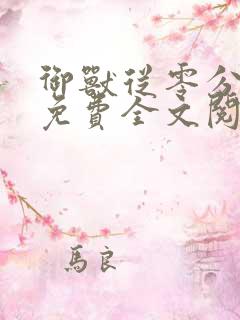 御獸從零分
免費全文閱
馬良